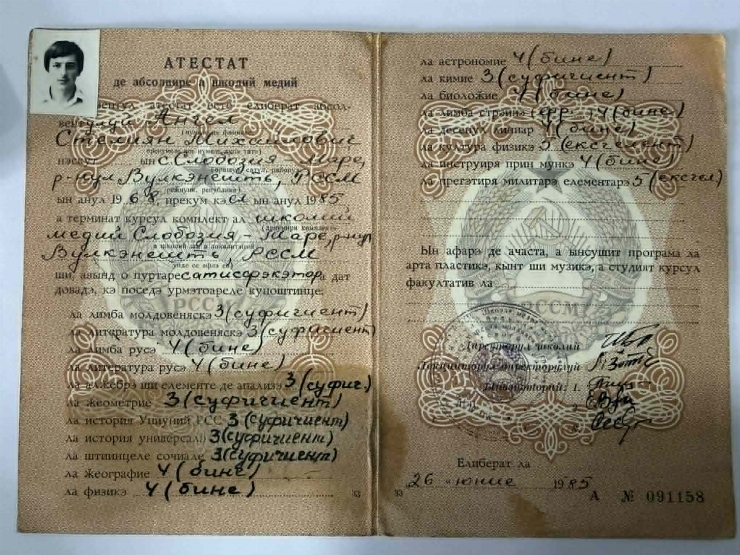 АТЕСТАТ
де абсолвире а школий медий
атестат есте елиберат абсол-
Ангел
Стелиян Михайлович
нэскут ын с. Слобозия Маре,
р-нул Вулкэнешть, РССМ
ын анул 1968, прекум кэ ел ын анул 1985
а терминат курсул комплект ал школий
медий Слобозия-Маре, р-нул
Вулкэнешть, РССМ
ши, авынд о пуртаре сатисфэкэтоаре, а дат
довадэ, кэ поседэ урмэтоареле куноштинце:
ла лимба молдовеняскэ 3 (суфичиент)
ла литература молдовеняскэ 3 (суфичиент)
ла лимба русэ 4 (бине)
ла литература русэ 4 (бине)
ла алжебрэ ши елементе де анализэ 3 (суфич.)
ла жеометрие 3 (суфичиент)
ла история Униуний РСС 3 (суфичиент)
ла история универсалэ 3 (суфичиент)
ла штиинцеле сочиале 3 (суфичиент)
ла жеографие 4 (бине)
ла физикэ 4 (бине)
РССМ
ла астрономие 4 (бине)
ла химие 3 (суфичиент)
ла биоложие 4 (бине)
ла лимба стрэинэ фр. 4 (бине)
ла десенул линиар 4 (бине)
ла култура физикэ 5 (ексчелент)
ла инструиря прин мункэ 4 (бине)
ла прегэтиря милитарэ елементарэ 5 (ексчел)
Ын афарэ де ачаста, а ынсушит програма ла
арта пластикэ, кынт ши музикэ, а студият курсул
факултатив ла
РССМ
Директорул школий
Локцииторул директорулуй
Ынвэцэторий: 1.
Елиберат ла
„26“ юние 1985
А № 091158